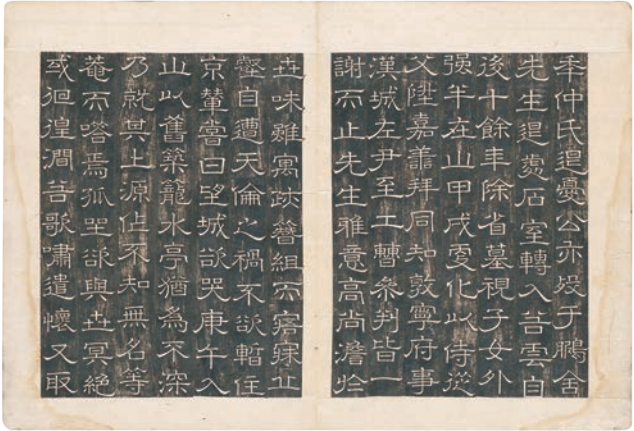 年仲氏退憂公亦歿于鵩舍
先生退處石室轉入谷雲自
後十餘年除省墓視子女外
强半在山甲戌更化以侍從
父陞嘉善拜同知敦寧府事
漢城左尹至工曹參判皆一
謝而止先生雅意高尚澹於
世味雖寓跡簪組而寤寐丘
壑自遭天倫之禍不欲暫住
京輦嘗曰望城欲哭庚午入
山以舊築籠水亭猶為不深
乃就其上源作不知無名等
菴而嗒焉孤坐欲與世冥絕
或徊徨澗谷歌嘯遣懷又取